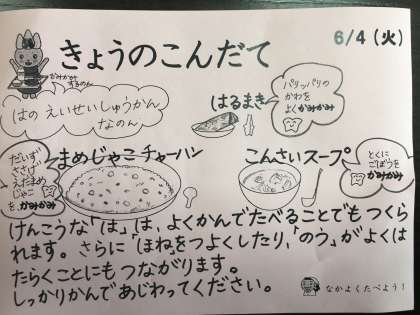 6/4(火)
きょうのこんだて
かみかみするのん
はの えいせいしゅうかん
なのん
はるまき
パリッパリの
かわを
よくかみかみ
まめじゃこチャーハン
だいず
ささげ
えだまめ
じゃこ
を、かみかみ
こんさいスープ
とくに
ごぼうを
かみかみ
けんこうな「は」は、よくかんでたべることでもつくら
れます。さらに「ほね」をつよくしたり、「のう」がよくは
たらくことにもつながります。
しっかりかんであじわってください。
なかよくたべよう!